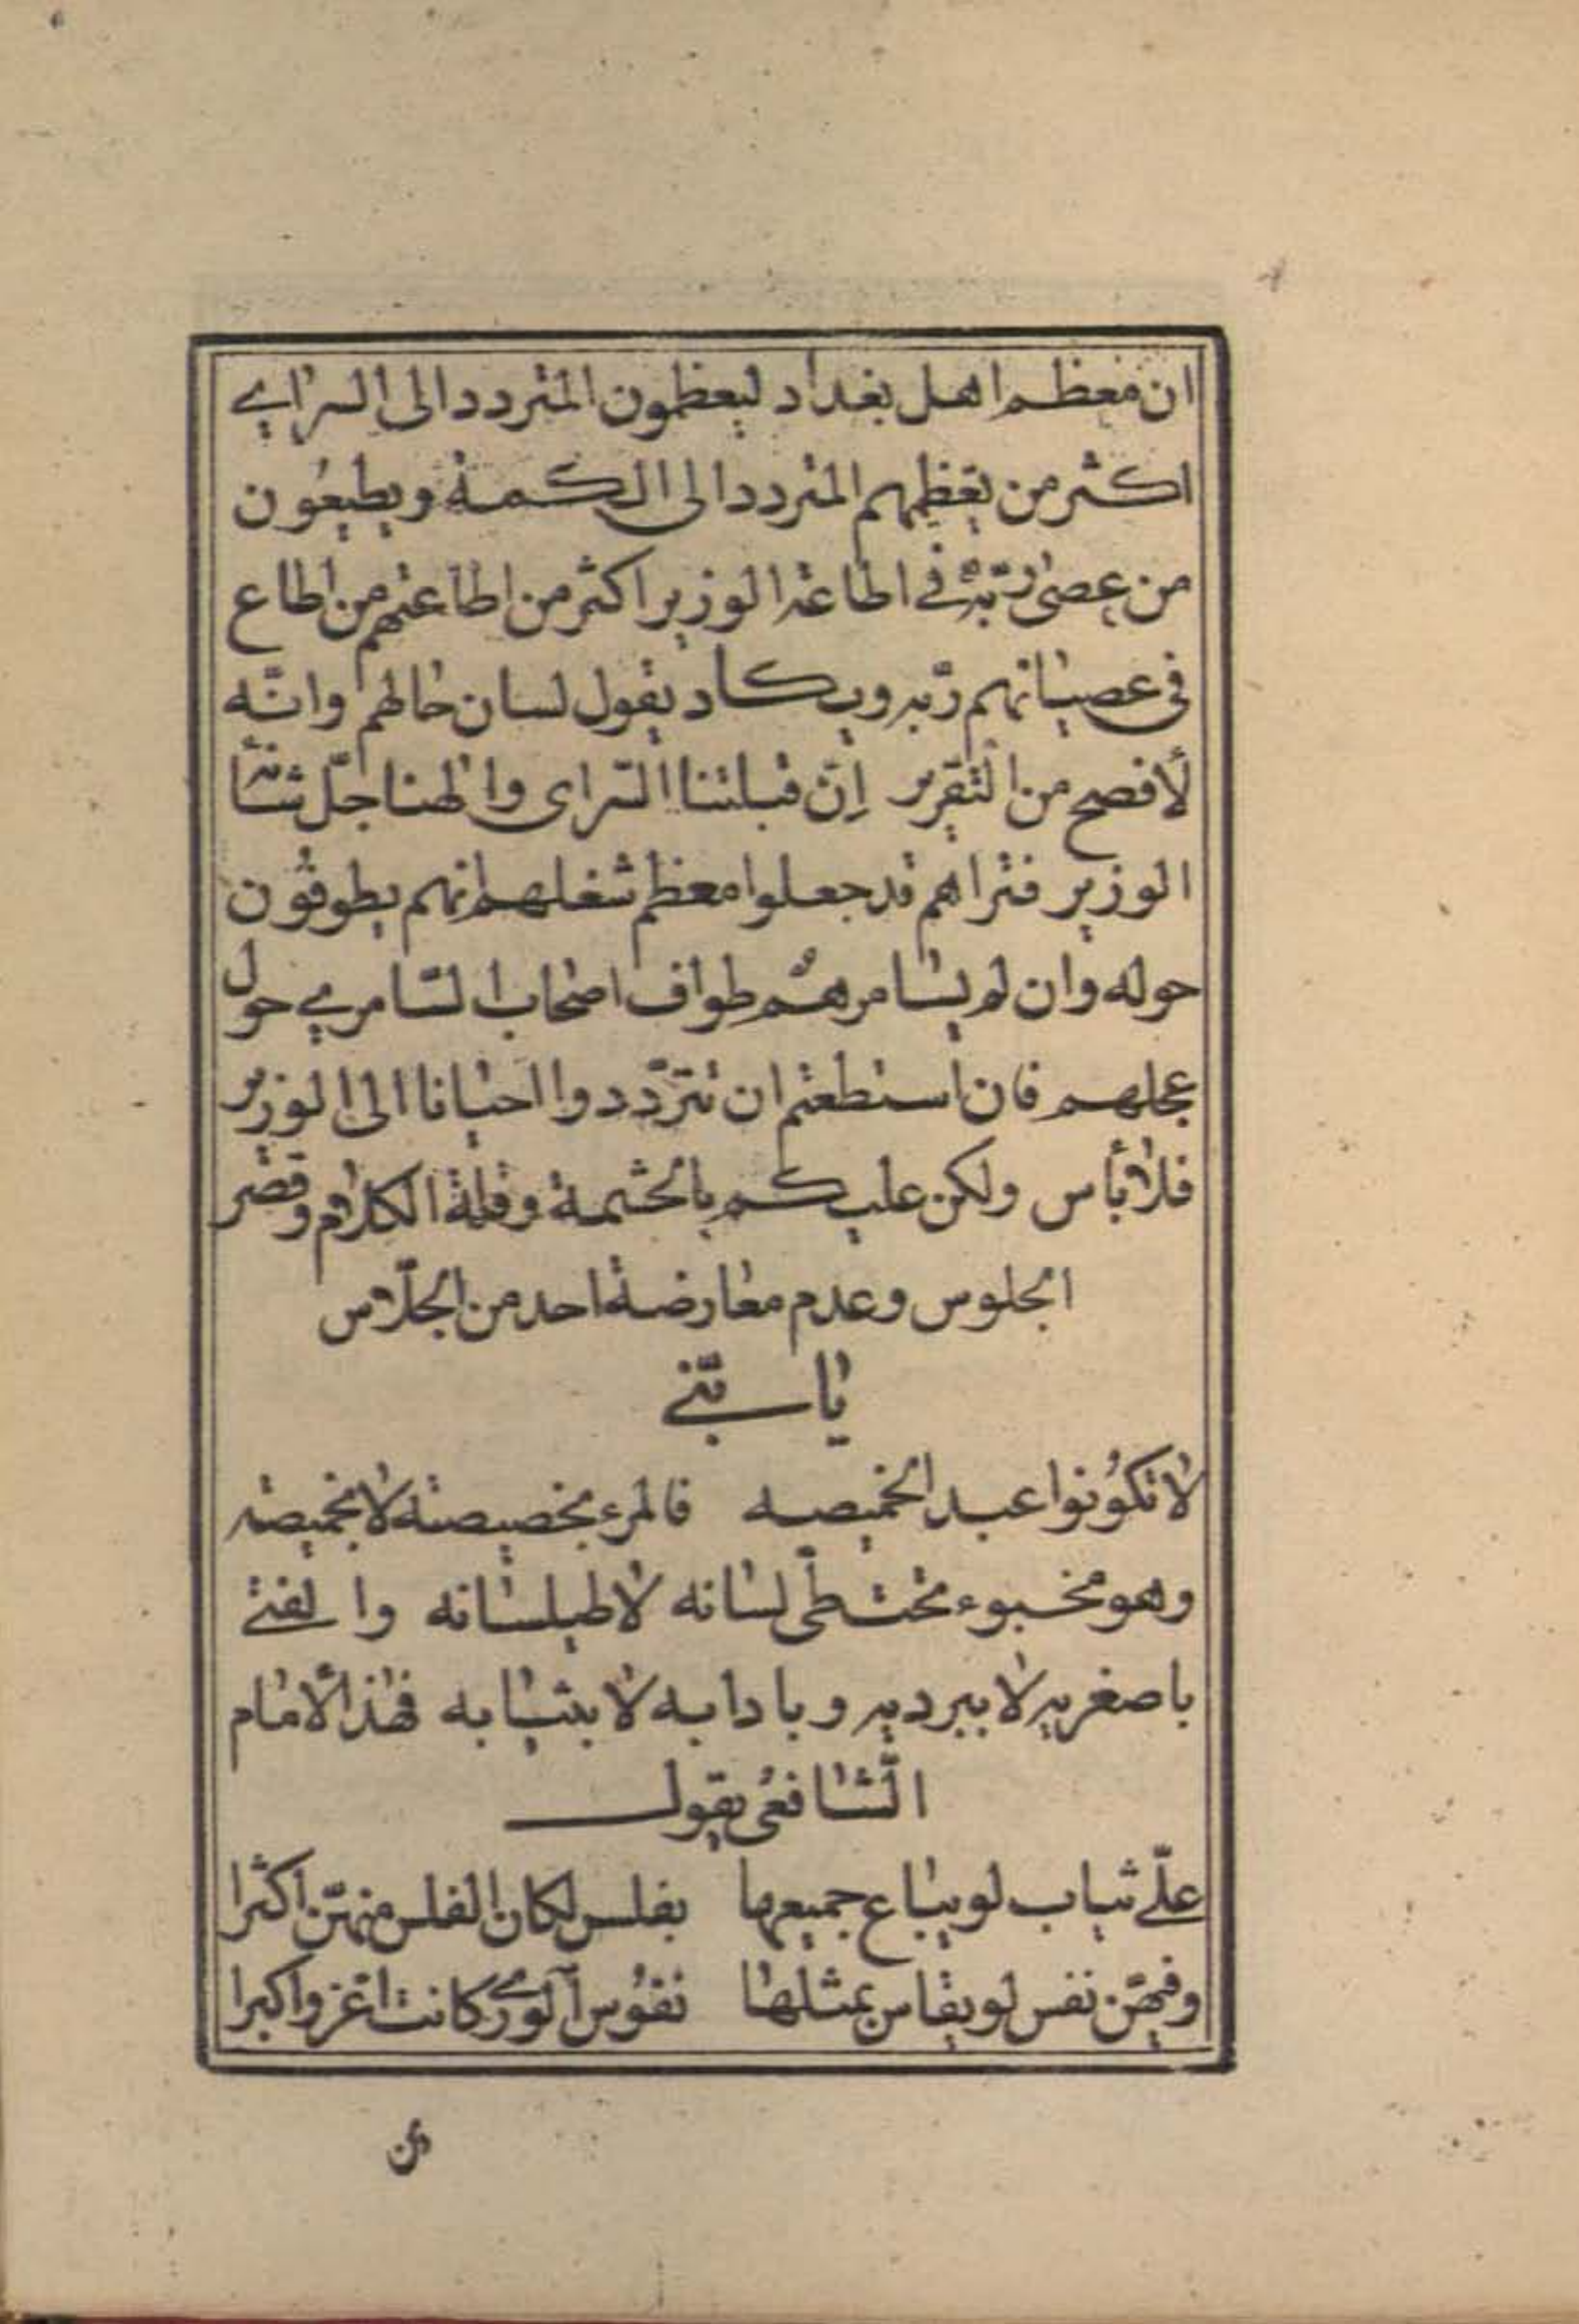 ان معظم اهل بغداد ليعظمون المتردد الى السراي
اكثر من تعظيمهم المتردد الى الكعبة ويطيعون
من عصى ربّه في اطاعة الوزير اكثر من اطاعتهم من اطاع
في عصيانهم ربّه ويكاد يقول لسان حالهم وانّه
لأفصح من التقرير إنّ قبلتنا السّراى والهنا جلّ شأنه
الوزير فتراهم قد جعلوا معظم شغلهم انهم يطوفون
حوله وان لم يسامرهُم طواف اصحاب السّامري حول
عجلهم فان استطعتم ان تتردّدوا احيانا الى الوزير
فلا بأس ولكن عليكم بالحشمة وقلة الكلام وقصر
الجلوس وعدم معارضة احد من الجلّاس
يا بنيّ
لا تكونوا عبد الخميصه فالمرء بخصيصته لا بخميصته
وهو مخبوء تحت طيّ لسانه لا طيلسانه والفتى
باصغريه لا ببرديه وبادابه لا بثيابه فهذا الأمام
الشّافعي يقول
علىّ ثياب لو يباع جميعها بفلس لكان الفلس منهنّ اكثرا
وفيهنّ نفس لو يقاس بمثلها نفوس الورى كانت اعز واكبرا